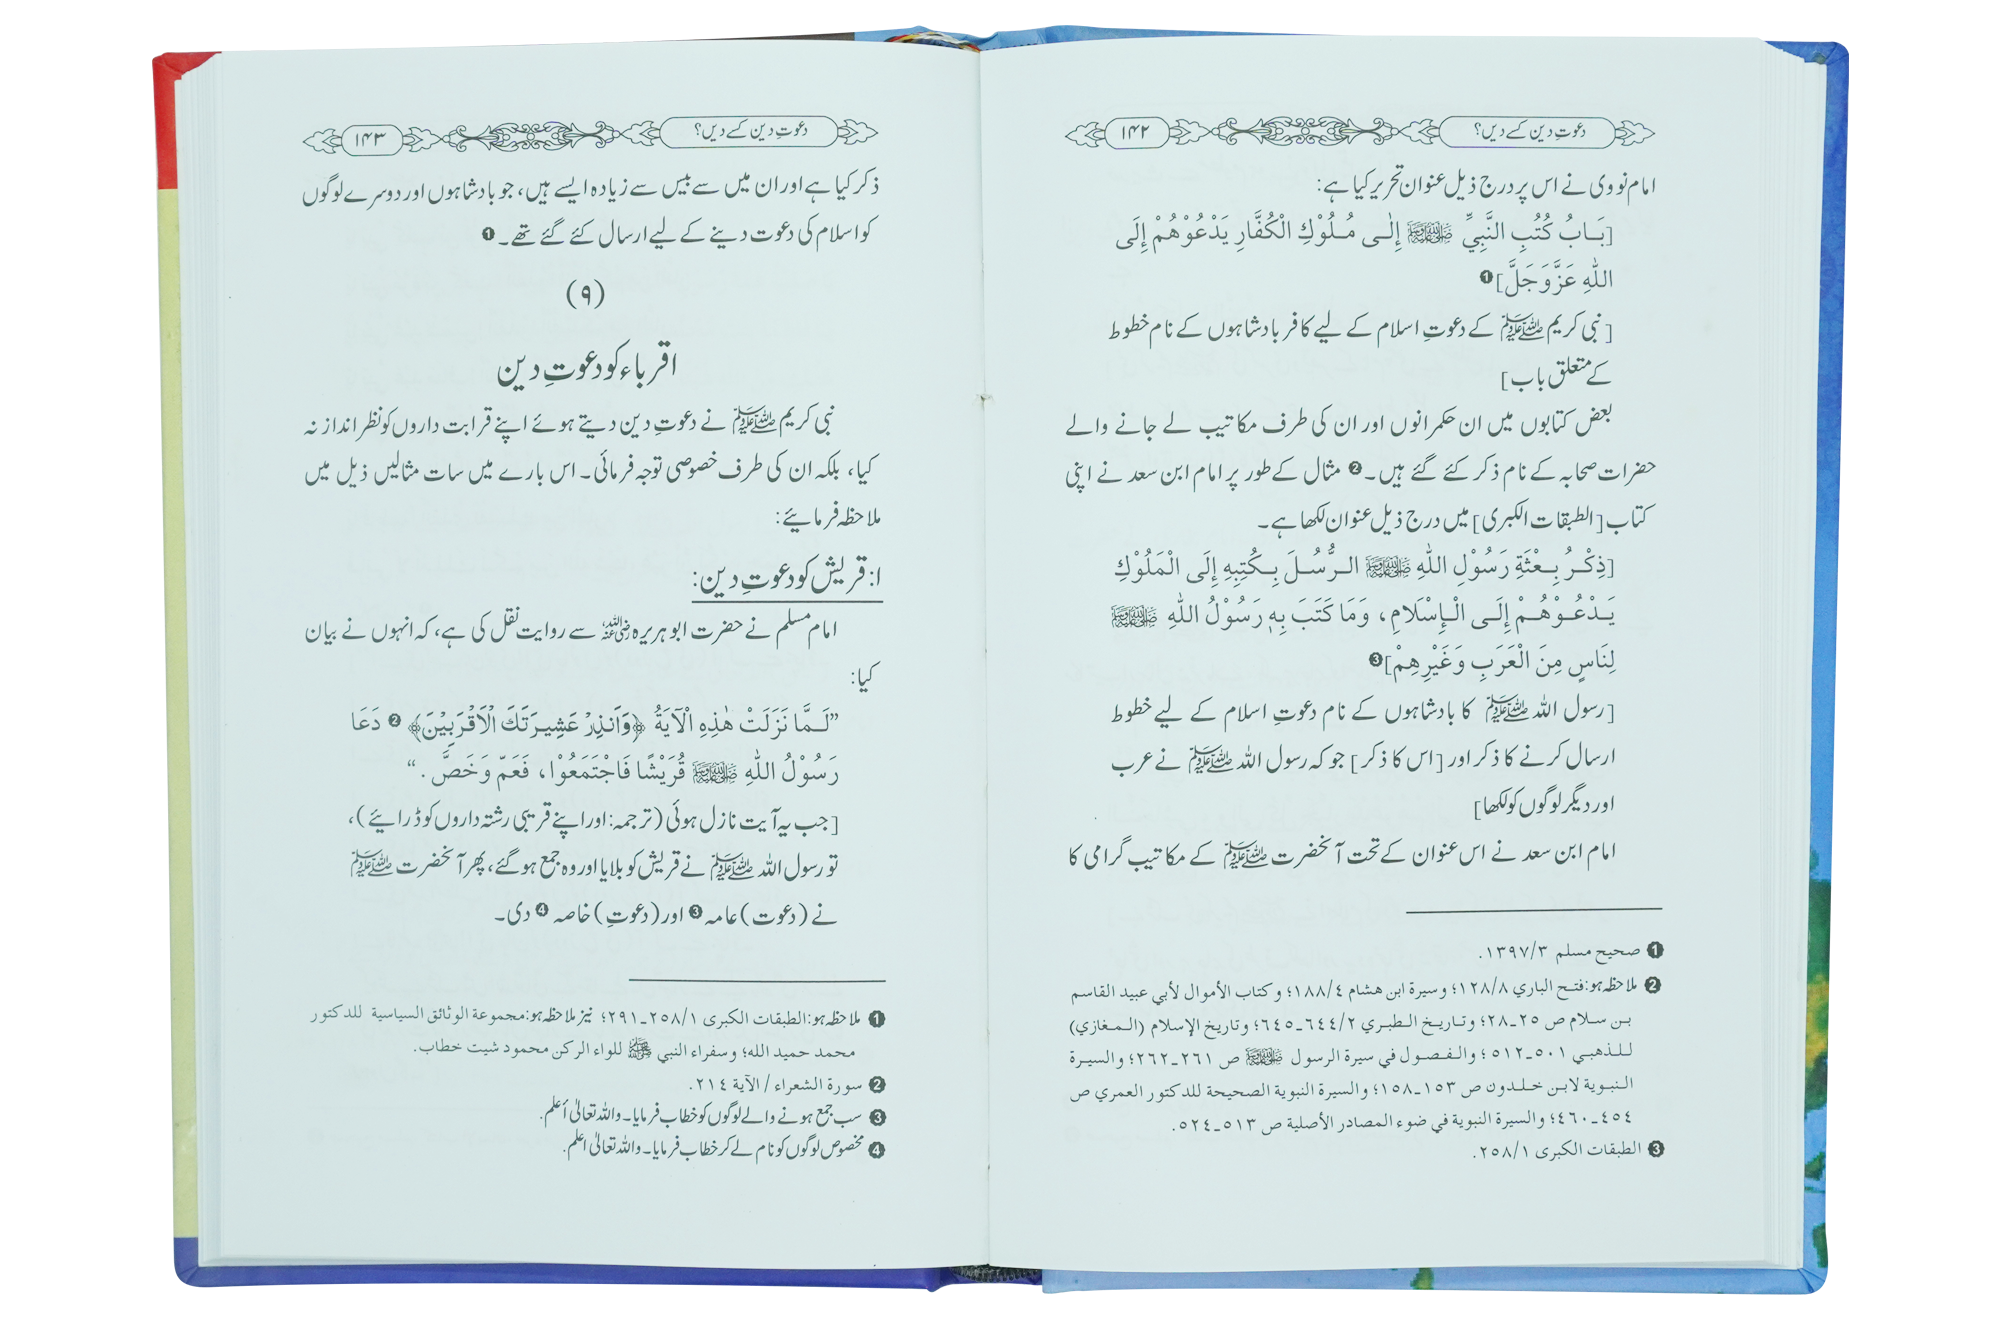 دعوتِ دین کسے دیں؟ ۱۴۲
امام نووی نے اس پر درج ذیل عنوان تحریر کیا ہے:
[بَـابُ كُتُبِ النَّبِيِّ ﷺ إِلٰـى مُـلُوْكِ الْكُفَّارِ يَدْعُوْهُمْ إِلَى
اللّٰهِ عَزَّوَجَلَّ] ❶
[نبی کریم ﷺ کے دعوتِ اسلام کے لیے کافر بادشاہوں کے نام خطوط
کے متعلق باب]
بعض کتابوں میں ان حکمرانوں اور ان کی طرف مکاتیب لے جانے والے
حضرات صحابہ کے نام ذکر کئے گئے ہیں۔ ❷ مثال کے طور پر امام ابن سعد نے اپنی
کتاب [الطبقات الکبری] میں درج ذیل عنوان لکھا ہے۔
[ذِكْـرُ بِـعْثَةِ رَسُوْلِ اللّٰهِ ﷺ الـرُّسُـلَ بِـكُتِبِهِ إِلَى الْمَلُوْكِ
يَـدْعُـوْهُـمْ إِلَـى الْـإِسْلَامِ، وَمَا كَتَبَ بِهِ رَسُوْلُ اللّٰهِ ﷺ
لِنَاسٍ مِنَ الْعَرَبِ وَغَيْرِهِمْ] ❸
[رسول اللہ ﷺ کا بادشاہوں کے نام دعوتِ اسلام کے لیے خطوط
ارسال کرنے کا ذکر اور [اس کا ذکر] جو کہ رسول اللہ ﷺ نے عرب
اور دیگر لوگوں کو لکھا]
امام ابن سعد نے اس عنوان کے تحت آنحضرت ﷺ کے مکاتیب گرامی کا
❶ صحیح مسلم ۱۳۹۷/۳.
❷ ملاحظہ ہو: فتـح الباري ۱۲۸/۸؛ وسيرة ابن هشام ۱۸۸/٤؛ وكتاب الأموال لأبي عبيد القاسم
بـن سـلام ص ۲۵۔۲۸؛ وتـاريـخ الـطبـري ۶٤٤/۲۔۶٤۵؛ وتاريخ الإسلام (الـمـغازي)
لـلـذهبـي ۵۰۱۔۵۱۲؛ والـفـصـول في سيرة الرسول ﷺ ص ۲۶۱۔۲۶۲؛ والسيـرة
النبـوية لابـن خـلـدون ص ۱۵۳۔۱۵۸؛ والسيرة النبوية الصحيحة للدكتور العمري ص
٤۵٤۔٤۶۰؛ والسيرة النبوية في ضوء المصادر الأصلية ص ۵۱۳۔۵۲٤.
❸ الطبقات الكبرى ۲۵۸/۱.
دعوتِ دین کسے دیں؟ ۱۴۳
ذکر کیا ہے اور ان میں سے بیس سے زیادہ ایسے ہیں، جو بادشاہوں اور دوسرے لوگوں
کو اسلام کی دعوت دینے کے لیے ارسال کئے گئے تھے۔ ❶
(۹)
اقرباء کو دعوتِ دین
نبی کریم ﷺ نے دعوتِ دین دیتے ہوئے اپنے قرابت داروں کو نظر انداز نہ
کیا، بلکہ ان کی طرف خصوصی توجہ فرمائی۔ اس بارے میں سات مثالیں ذیل میں
ملاحظہ فرمائیے:
ا: قریش کو دعوتِ دین:
امام مسلم نے حضرت ابو ہریرہ رضی اللہ عنہ سے روایت نقل کی ہے، کہ انہوں نے بیان
کیا:
”لَـمَّا نَزَلَتْ هٰذِهِ الْآيَةُ ﴿وَأَنذِرْ عَشِيـرَتَكَ الْأَقْرَبِيْنَ﴾ ❷ دَعَا
رَسُوْلُ اللّٰهِ ﷺ قُرَيْشًا فَاجْتَمَعُوْا، فَعَمّ وَخَصَّ .“
[جب یہ آیت نازل ہوئی (ترجمہ: اور اپنے قریبی رشتہ داروں کو ڈرائیے)،
تو رسول اللہ ﷺ نے قریش کو بلایا اور وہ جمع ہوگئے، پھر آنحضرت ﷺ
نے (دعوت) عامہ ❸ اور (دعوتِ) خاصہ ❹ دی۔
❶ ملاحظہ ہو: الطبقات الكبرى ۲۵۸/۱۔۲۹۱؛ نیز ملاحظہ ہو: مجموعة الوثائق السياسية للدكتور
محمد حميد الله؛ وسفراء النبي ﷺ للواء الركن محمود شيت خطاب.
❷ سورة الشعراء / الآية ۲۱٤.
❸ سب جمع ہونے والے لوگوں کو خطاب فرمایا۔ واللہ تعالیٰ أعلم.
❹ مخصوص لوگوں کو نام لے کر خطاب فرمایا۔ واللہ تعالیٰ اعلم.